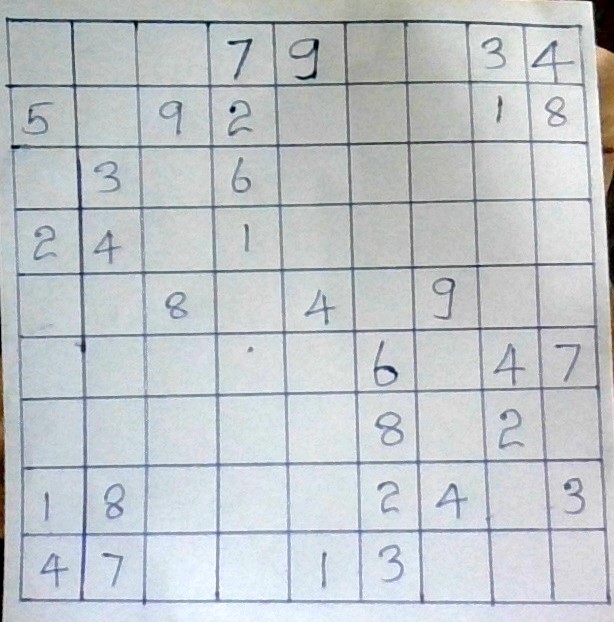 7 9 3 4
5 9 2 1 8
3 6
2 4 1
8 4 9
6 4 7
8 2
1 8 2 4 3
4 7 1 3